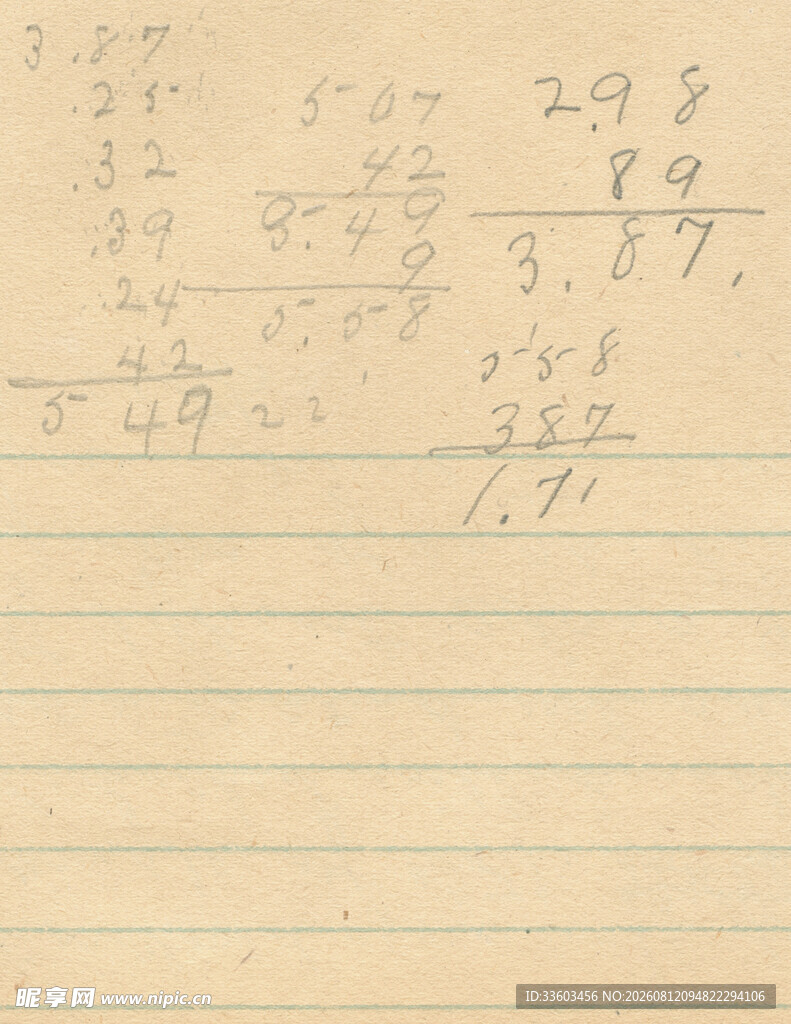 3.87
.25
.32
.39
.24
42
5 49
22
5 07
42
5.49
9
5.58
2.98
89
3.87
558
387
1.71
昵享网 www.nipic.cn
ID:33603456 NO:20260812094822294106